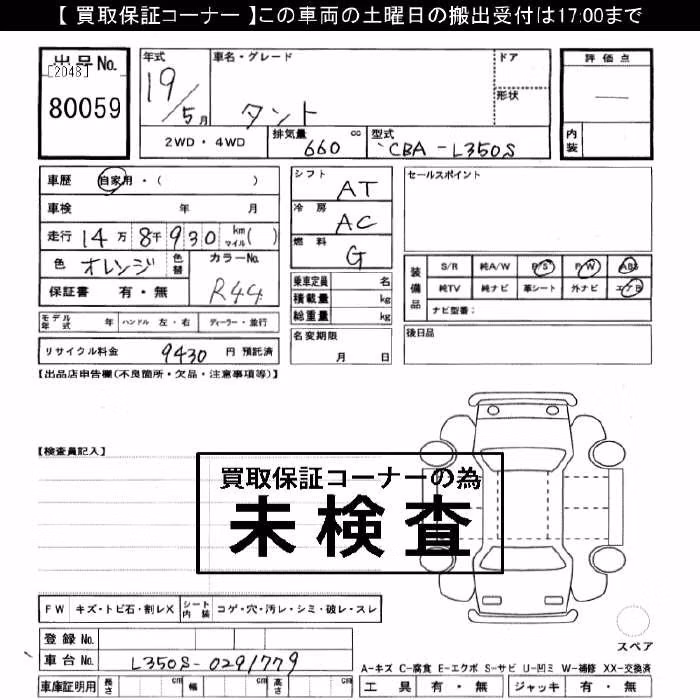 【 買取保証コーナー 】この車両の土曜日の搬出受付は17:00まで
出品No.
[2048]
80059
年式 19/5月
車名・グレード
タント
ドア
形状
評価点
—
内装
2WD・4WD
排気量 660 cc
型式 CBA-L350S
車歴 自家用・( )
車検 年 月
走行 14万8千930 km マイル( )
色 オレンジ 色替
カラーNo. R44
保証書 有・無
シフト AT
冷房 AC
燃料 G
乗車定員 名
積載量 kg
総重量 kg
名変期限
月 日
セールスポイント
装備品
S/R 純A/W P/S P/W ABS
純TV 純ナビ 革シート 外ナビ エアB
ナビ型番:
後日品
モデル年式 年 ハンドル 左・右 ディーラー・並行
リサイクル料金 9430 円 預託済
【出品店申告欄(不良箇所・欠品・注意事項等)】
【検査員記入】
買取保証コーナーの為
未検査
FW キズ・トビ石・割レX シート内装 コゲ・穴・汚レ・シミ・破レ・スレ
登録No.
車台No. L350S-0291779
車庫証明用 長さ cm 幅 cm 高さ cm
スペア
A-キズ C-腐食 E-エクボ S-サビ U-凹ミ W-補修 XX-交換済
工具 有・無 ジャッキ 有・無